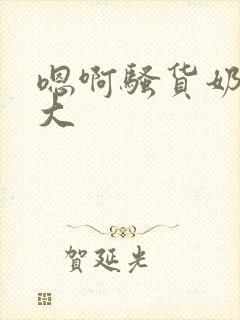 嗯啊骚货奶
大
贺延光